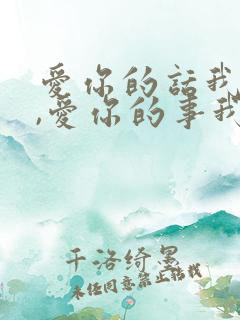 爱你的話我
,爱你的事我
千洛绮墨
未经同意禁止搭我